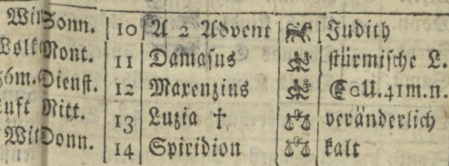 Wit Sonn. 10 A 2 Advent Judith
Volk Mont. 11 Damasus stürmische L.
Dienst. 12 Maxenzius U. 41m.n.
Mitt. 13 Luzia † veränderlich
Wit Donn. 14 Spiridion kalt